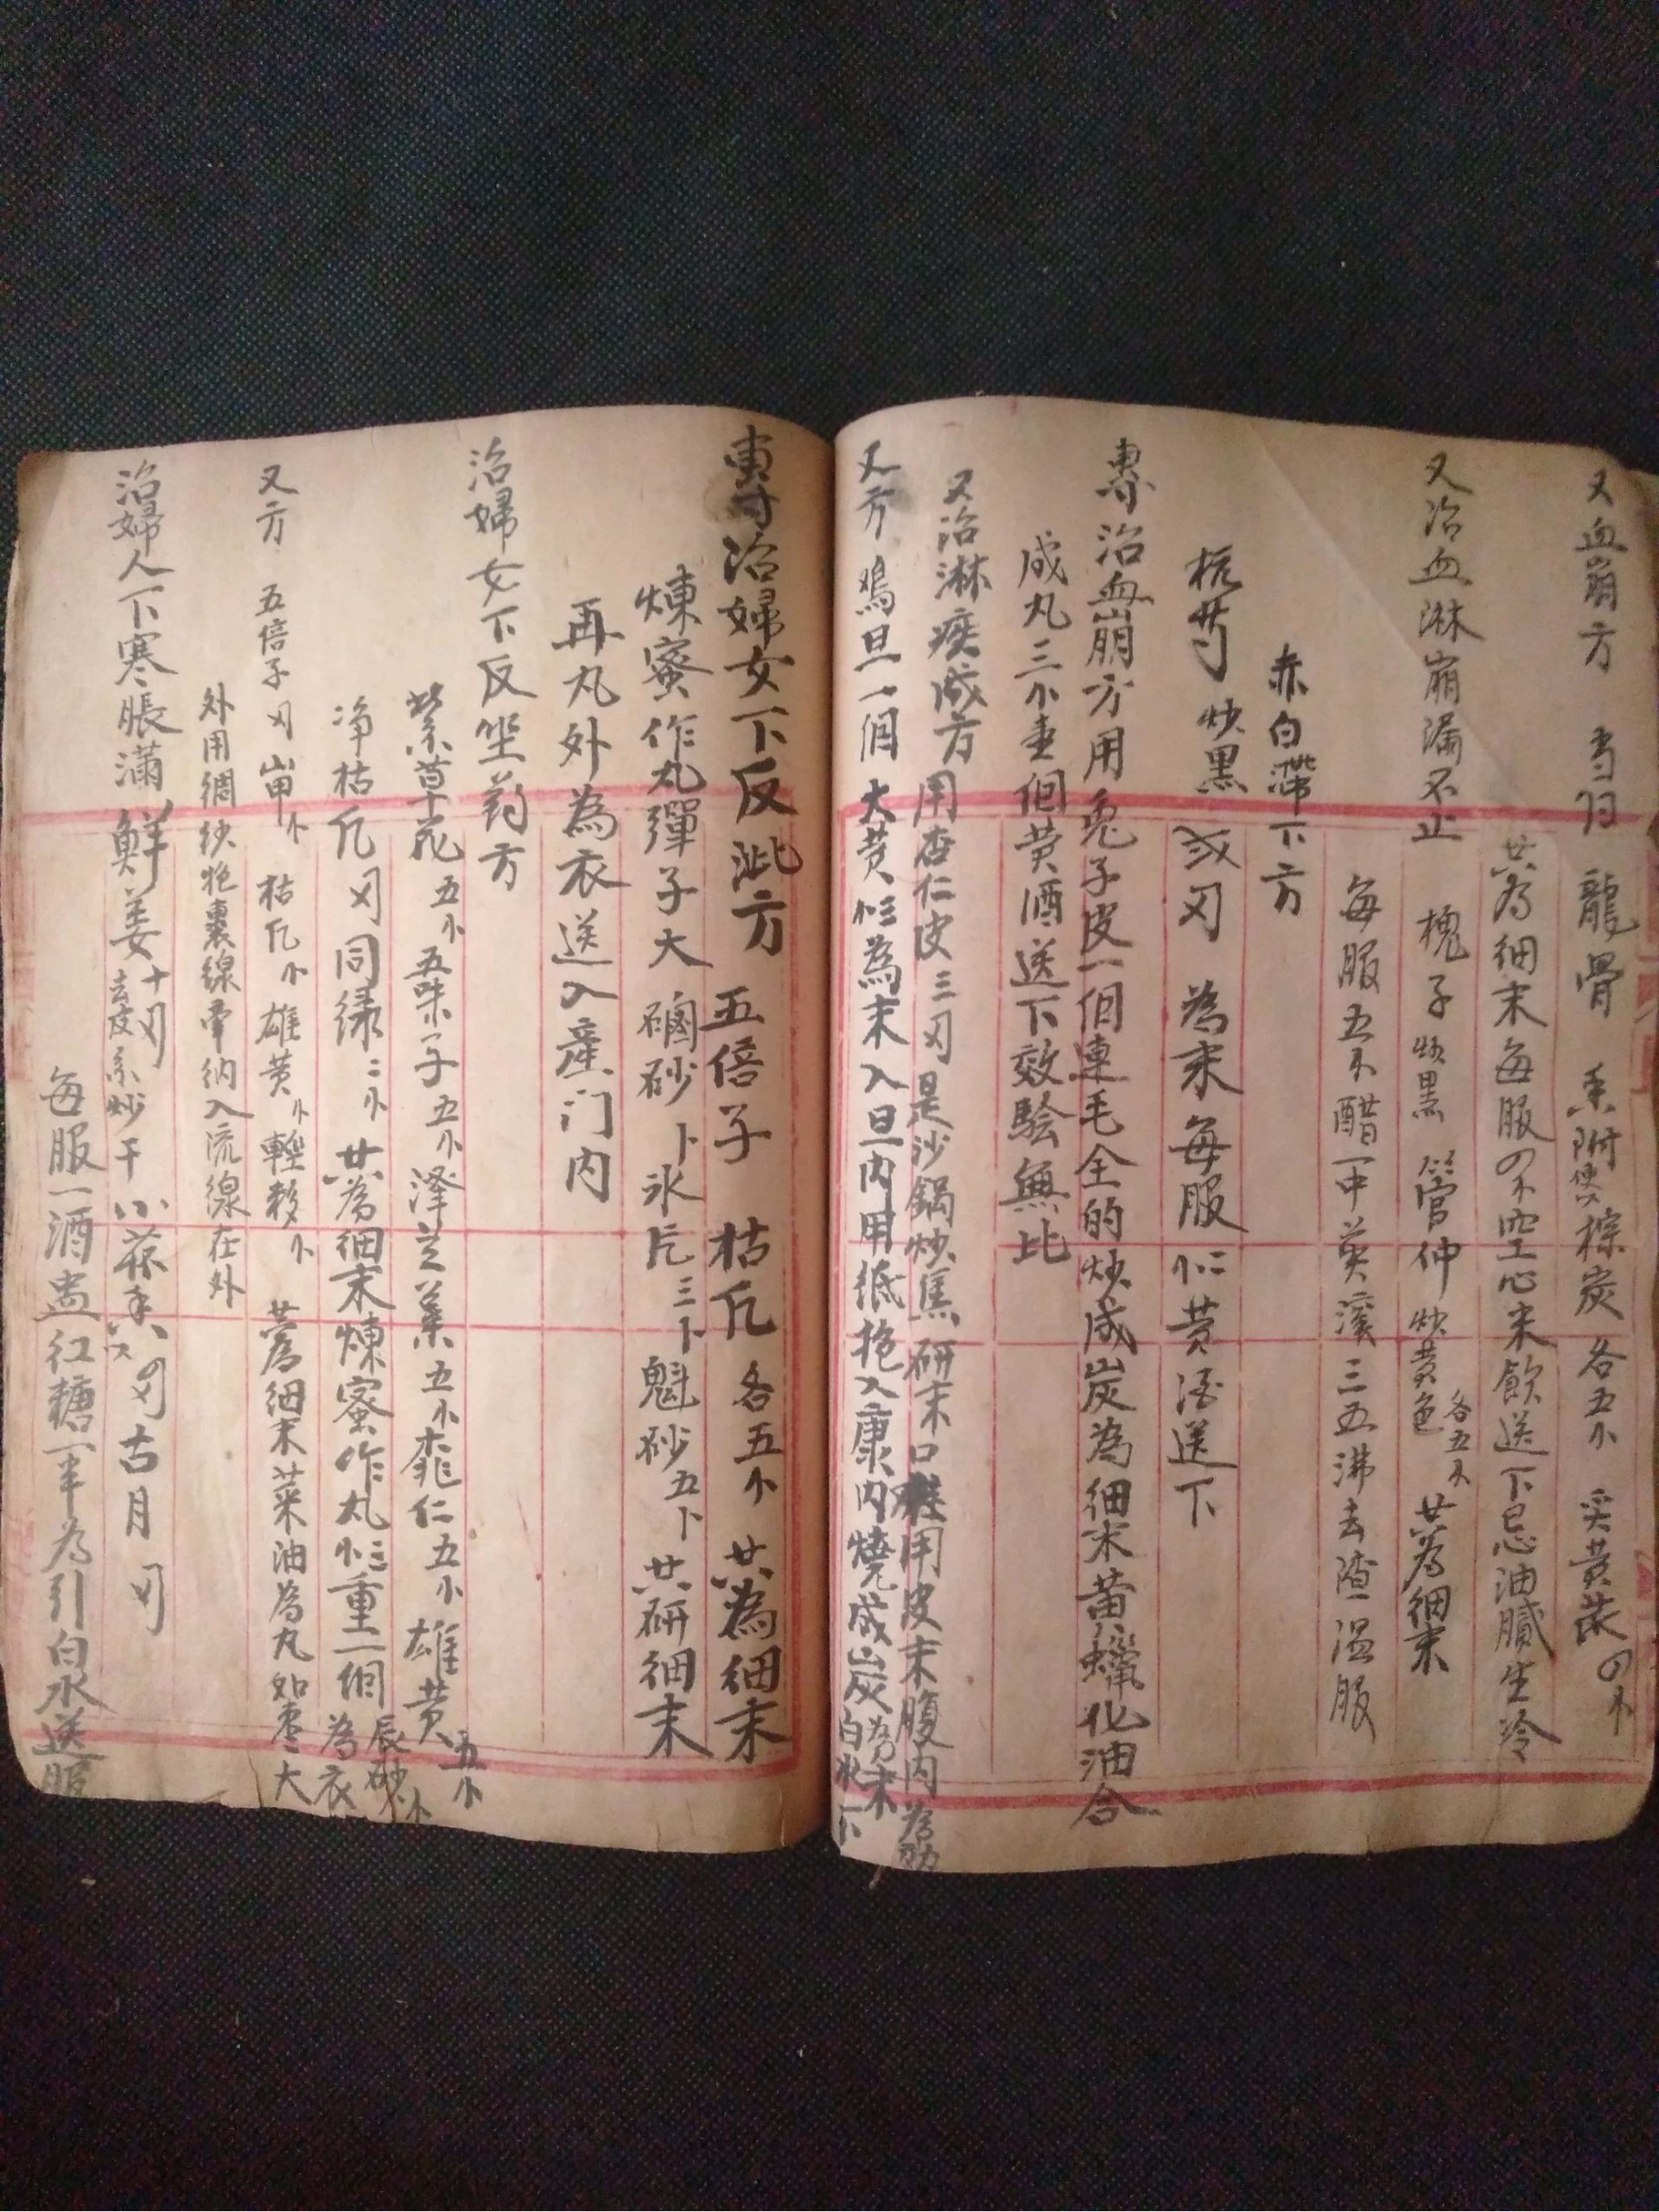 又血崩方 当归 龍骨 香附 棕炭 各五小 炙黄芪
共為細末每服 空心米飲送下忌油膩生冷
又治血淋崩漏不止 槐子炒黑 管仲炒黄色 各五小 共為細末
每服五小醋一中 滚三五沸去渣温服
赤白滞下方
杭芍炒黑 為末每服 黄酒送下
專治血崩方用兎子皮一個連毛全的炒成炭為細末黄蠟化油合
成丸三小重個黄酒送下效驗無比
又治淋疾成方 用杏仁皮三 是沙鍋炒焦研末 用皮末腹内
又方 鳮旦一個 大黄 為末入旦内用紙抱入康内燒成炭為末白水下
專治婦女下反泚方 五倍子 枯凡 各五小 共為細末
煉蜜作丸彈子大 硇砂 氷片三卜 魁砂五卜 共研細末
再丸外為衣送入産门内
治婦女下反坐药方
紫草花五小 五味子五小 澤兰葉五小 桃仁五小 雄黄五小
净枯凡 同绿二小 共為細末煉蜜咋丸 重一個 辰砂 為衣
又方 五倍子 枯凡小 雄黄小 輕粉小 共為細末菜油為丸如枣大
外用綢 抱裹線牵纳入流線在外
治婦人下寒脹滿 鮮姜十 去皮 炒干 小茴香 古月
每服一酒盅红糖一半為引白水送服